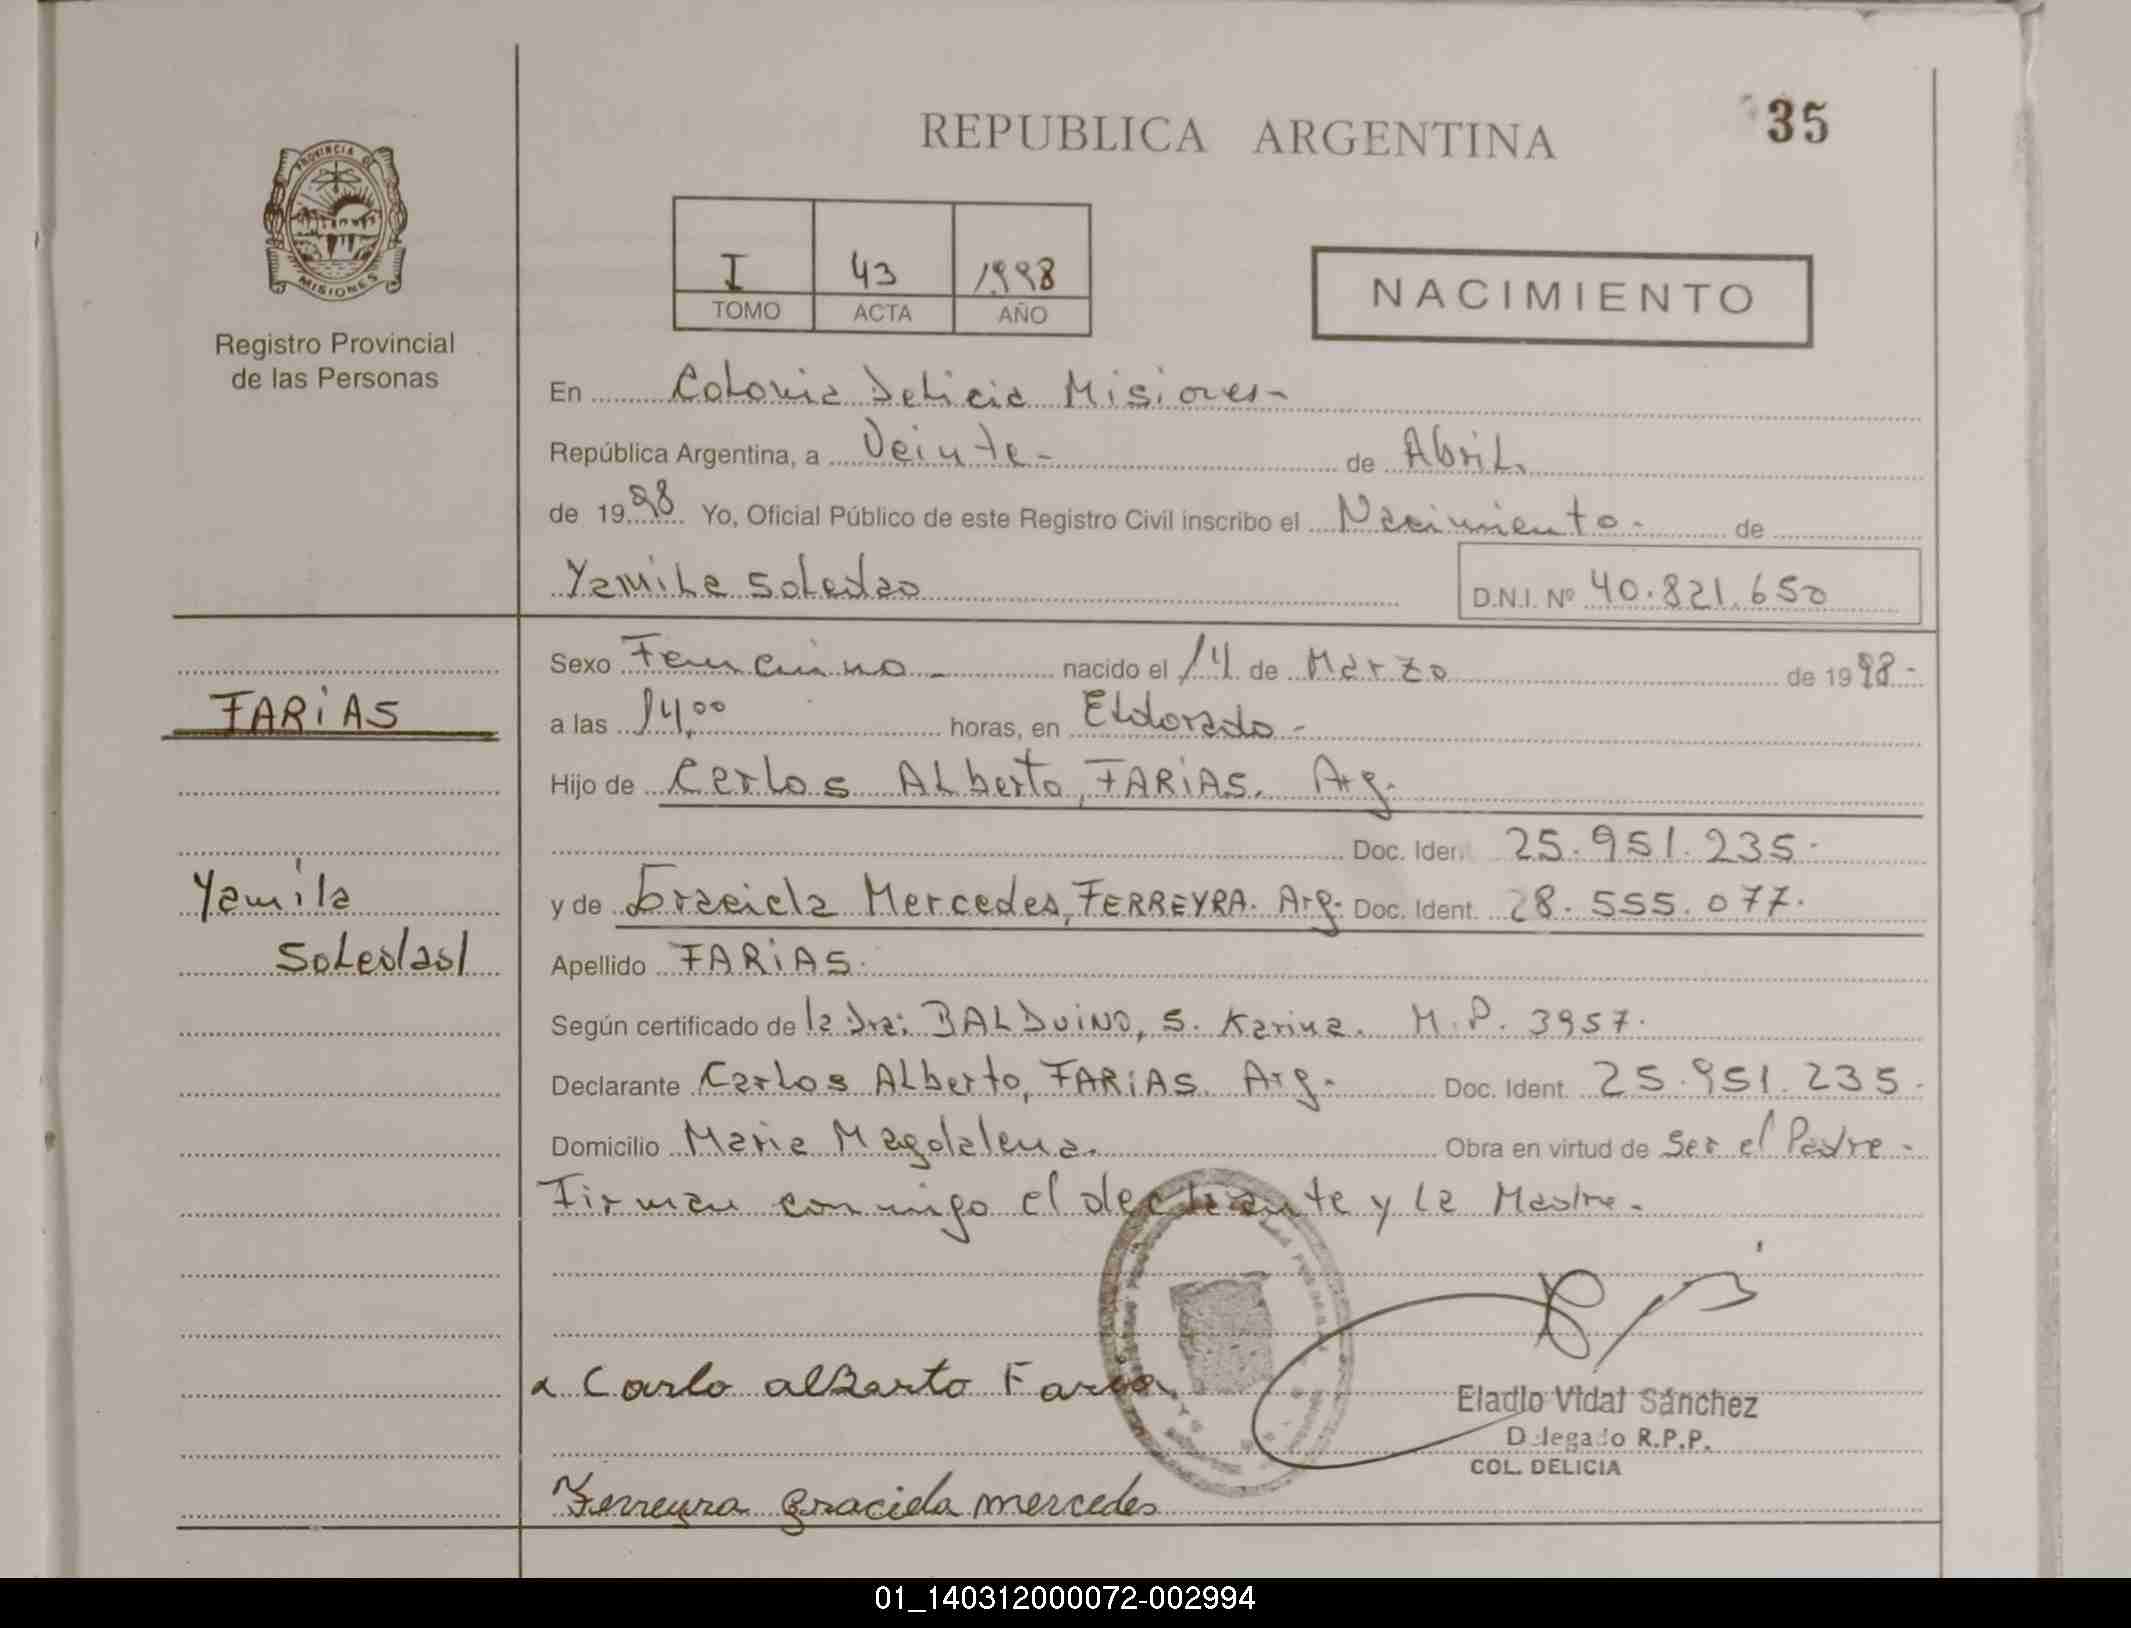 REPUBLICA ARGENTINA
35
PROVINCIA DE
MISIONES
Registro Provincial
de las Personas
I 43 1998
TOMO ACTA AÑO
NACIMIENTO
En Colonia Delicia Misiones-
República Argentina, a Veinte- de Abril.
de 1998 Yo, Oficial Público de este Registro Civil inscribo el Nacimiento- de
Yamila Soledad D.N.I. Nº 40.821.650
FARiAS
Yamila
Soledad
Sexo Femenino- nacido el 14 de Marzo de 1998-
a las 14,00 horas, en Eldorado-
Hijo de Carlos Alberto, FARiAS. Arg.
Doc. Iden. 25.951.235.
y de Graciela Mercedes, FERREYRA. Arg. Doc. Ident. 28.555.077.
Apellido FARiAS.
Según certificado de la Dra: BALDUiNO, S. Karina. M.P. 3957.
Declarante Carlos Alberto, FARiAS. Arg.- Doc. Ident. 25.951.235.
Domicilio Maria Magdalena. Obra en virtud de Ser el Padre-
Firman conmigo el declarante y la Madre-
Carlo alberto Faria
Eladio Vidal Sánchez
Delegado R.P.P.
COL. DELICIA
Ferreyra graciela mercedes
01_140312000072-002994